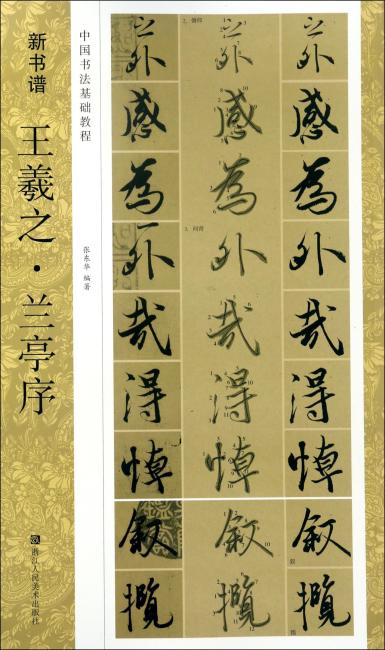 新书谱
王羲之·兰亭序
浙江人民美术出版社
中国书法基础教程
张东华 编著
之外 2、俯仰 之外 之外
感 感 感
為 為 為
外 3、向背 外 外
哉 哉 哉
得 得 得
悼 悼 悼
叙 叙 叙 叙
攬 攬 攬